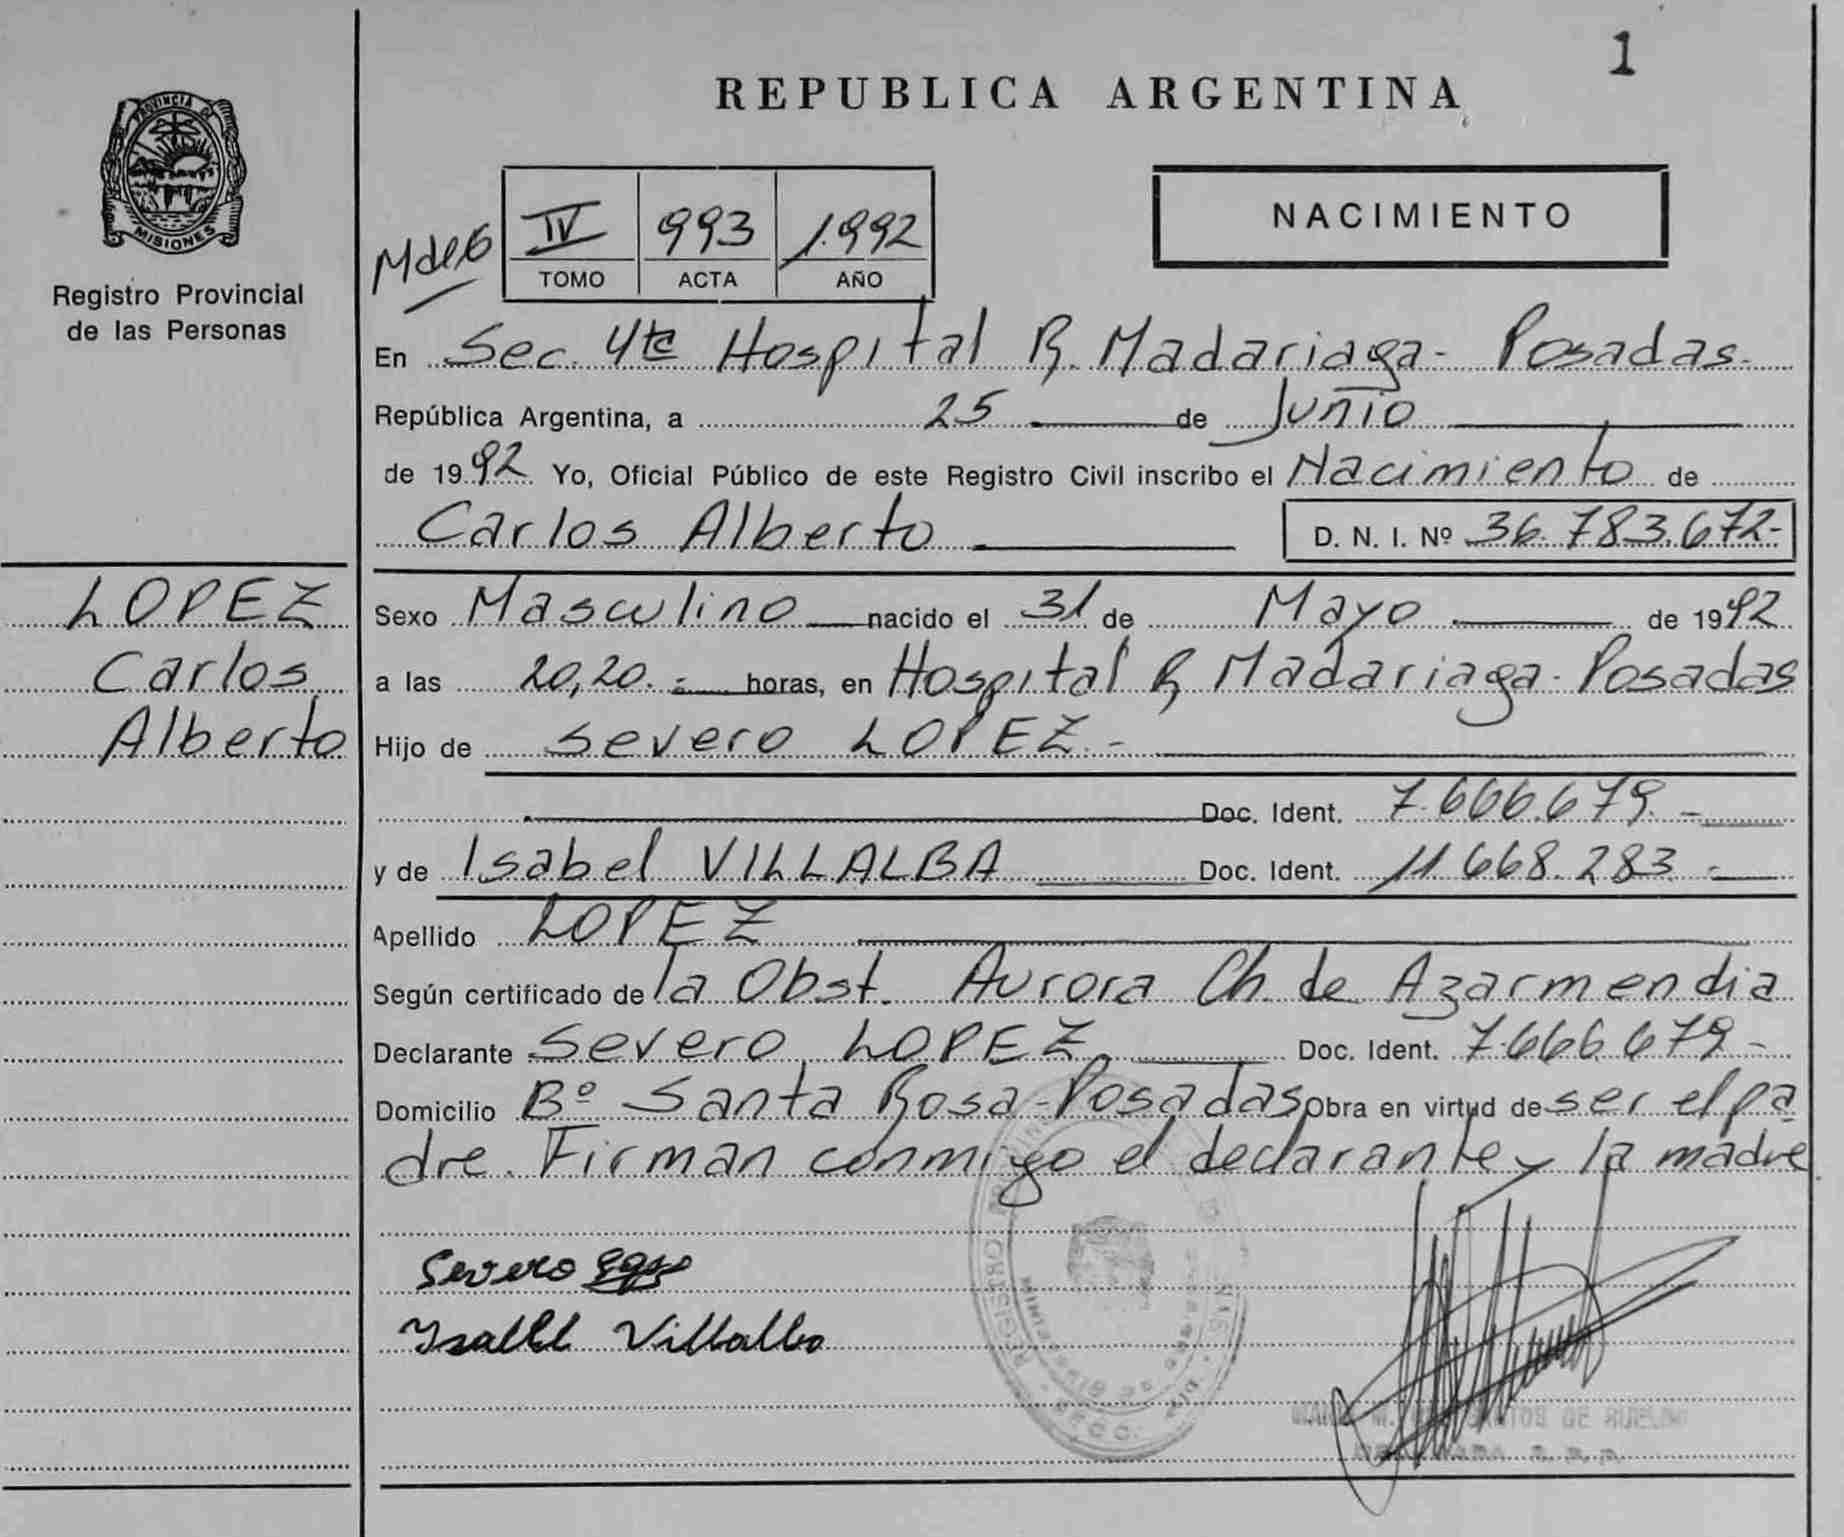 1
REPUBLICA ARGENTINA
PROVINCIA D
MISIONES
Registro Provincial
de las Personas
NACIMIENTO
IV 993 1.992
TOMO ACTA AÑO
En Sec. 4ta Hospital R. Madariaga - Posadas.
República Argentina, a 25 de Junio
de 1992 Yo, Oficial Público de este Registro Civil inscribo el Nacimiento de
Carlos Alberto D. N. I. Nº 36.783.672-
LOPEZ
Carlos
Alberto
Sexo Masculino nacido el 31 de Mayo de 1992
a las 20,20.- horas, en Hospital R Madariaga - Posadas
Hijo de Severo LOPEZ.-
Doc. Ident. 7.666.679.-
y de Isabel VILLALBA Doc. Ident. 11.668.283.-
Apellido LOPEZ
Según certificado de la Obst. Aurora Ch. de Azarmendia
Declarante Severo LOPEZ Doc. Ident. 7.666.679-
Domicilio Bº Santa Rosa - Posadas Obra en virtud de ser el pa
dre. Firman conmigo el declarante y la madre
Severo
Isabel Villalba
REGISTRO
SECC.